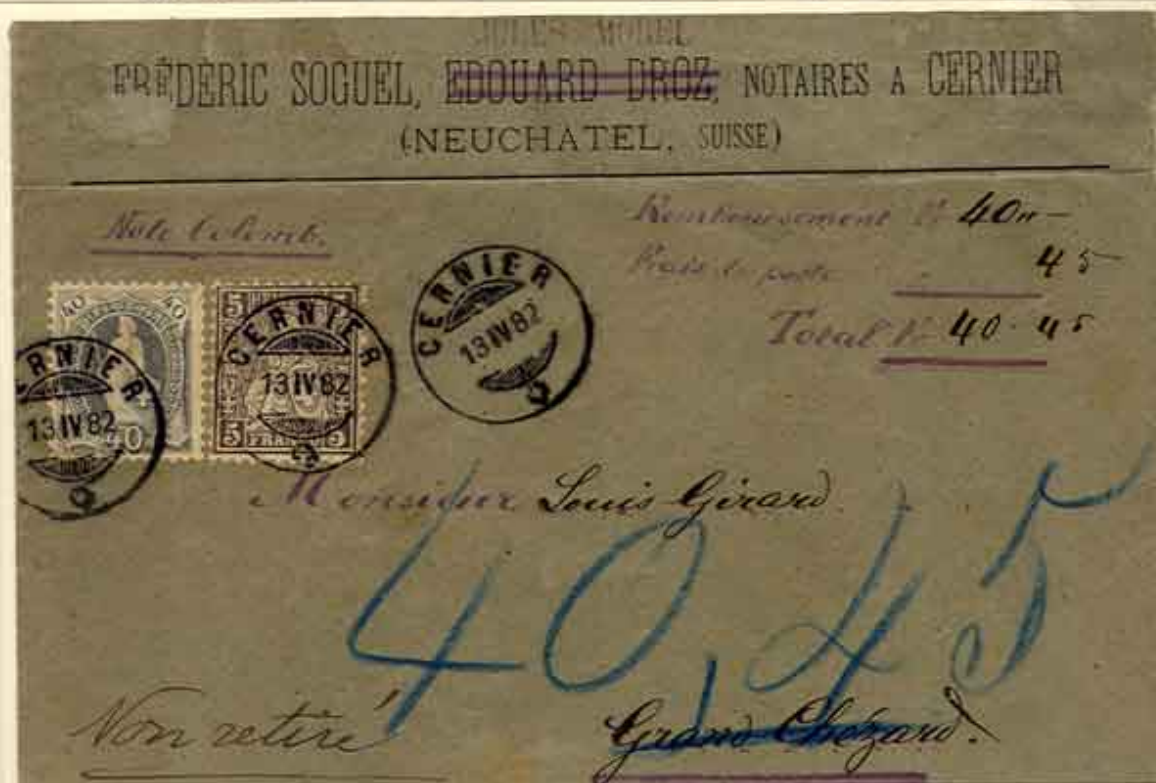 JULES MOREL
FRÉDÉRIC SOGUEL, EDOUARD DROZ, NOTAIRES A CERNIER
(NEUCHATEL, SUISSE)
Note
Remboursement fr 40 " -
Frais de poste 45
Total fr 40 . 45
CERNIER
13 IV 82
CERNIER
13 IV 82
CERNIER
13 IV 82
40 40
40
5 5
5 FRANCO 5
Monsieur Louis Girard
40,45
Non retiré
Grand Chézard.